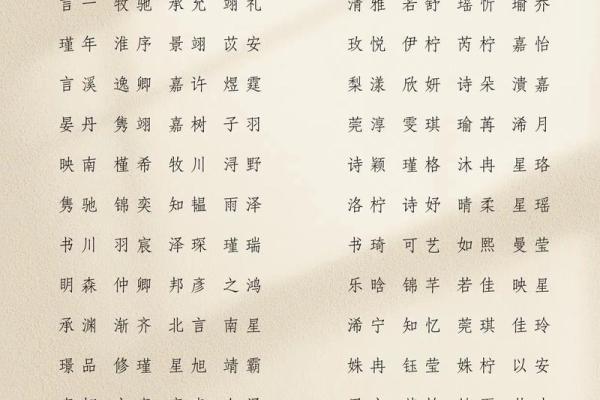 言一 牧驰 承允 翊礼 清雅 若舒 瑶忻 瑜乔
瑾年 淮序 景翊 苡安 玫悦 伊柠 芮柠 嘉怡
言溪 逸卿 嘉许 煜霆 梨漾 欣妍 诗朵 潰嘉
晏丹 隽翊 嘉树 子羽 莞淳 雯琪 瑜苒 浠月
映南 槿希 牧川 浔野 诗颖 瑾格 沐冉 星珞
隽驰 锦奕 知韫 雨泽 洛柠 诗妤 晴柔 星瑶
书川 羽宸 泽琛 瑾瑞 书琦 可艺 如熙 曼莹
明森 仲卿 邦彦 之鸿 乐晗 锦芊 若佳 映星
承渊 渐齐 北言 南星 浠宁 知忆 莞琪 佳玲
璟品 修瑾 星旭 靖霸 姝冉 钰莹 姝柠 以安